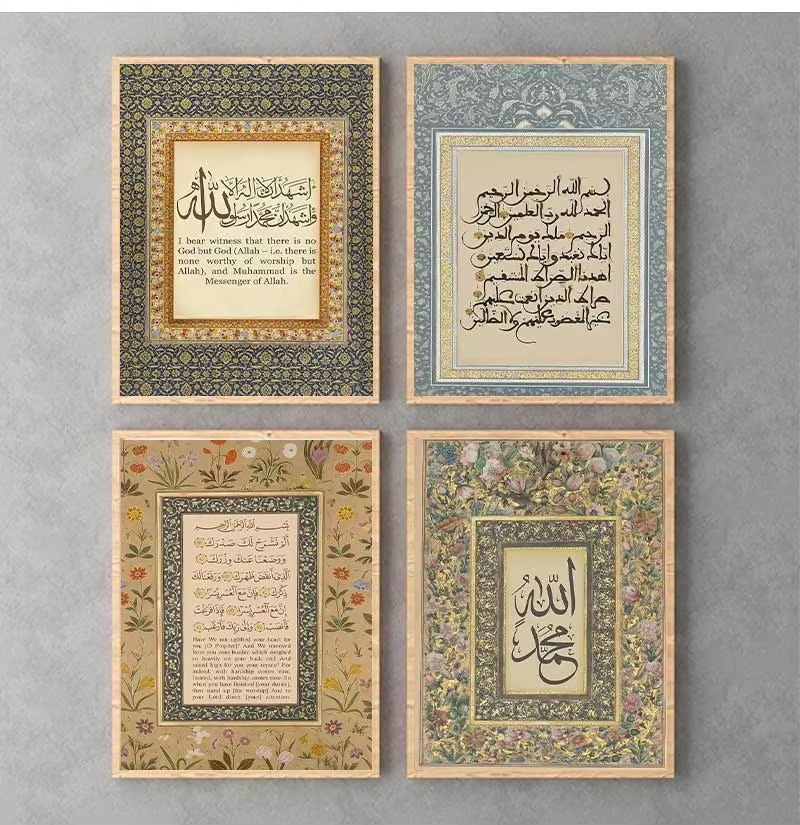 أشهد أن لا إله إلا الله
وأشهد أن محمدا رسول
I bear witness that there is no
God but God (Allah – i.e. there is
none worthy of worship but
Allah), and Muhammad is the
Messenger of Allah.
بسم الله الرحمن الرحيم
الحمد لله رب العلمين الرحمن
الرحيم ملك يوم الدين
إياك نعبد وإياك نستعين
اهدنا الصراط المستقيم
صراط الذين أنعمت عليهم
غير المغضوب عليهم ولا الضالين
بسم الله الرحمن الرحيم
ألم نشرح لك صدرك
ووضعنا عنك وزرك
الذي أنقض ظهرك ورفعنا لك
ذكرك فإن مع العسر يسرا
إن مع العسر يسرا فإذا فرغت
فانصب وإلى ربك فارغب
Have We not uplifted your heart for
you [O Prophet]? And We removed
from you your burden which weighed
so heavily on your back and And
raised high for you your repute? For
indeed, with hardship comes ease.
Indeed, with hardship comes ease. So
when you have finished [your duties],
then stand up [for worship] And to
your Lord direct [your] attention.
الله
محمد